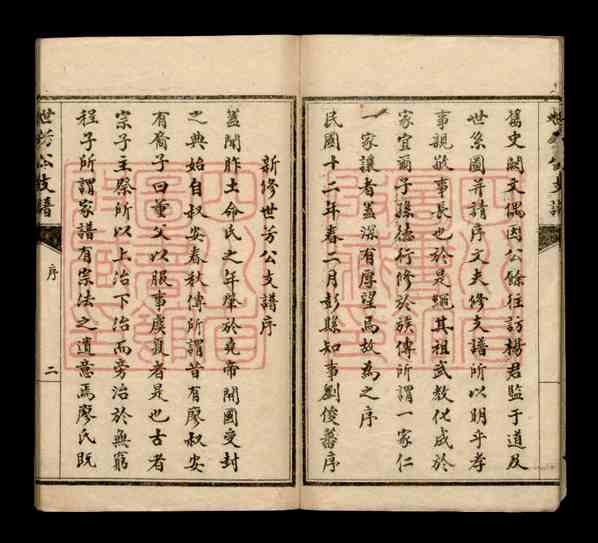 舊史闕文偶因公餘往訪楊君監于道及
世系圖并請序文夫修支譜所以明乎孝
事親敬事長也於是繩其祖武教化成於
家宜爾子孫德行修於族傳所謂一家仁
一家讓者蓋深有厚望焉故為之序
民國十二年春二月彭縣知事劉俊蕃序
新修世芳公支譜序
蓋聞胙土命氏之年舉於堯帝開國受封
之典始自叔安春秋傳所謂昔有廖叔安
有裔子曰董父以服事虞夏者是也古者
宗子主祭所以上治下治而旁治於無窮
程子所謂家譜有宗法之遺意焉廖氏既
世芳公支譜
序
二